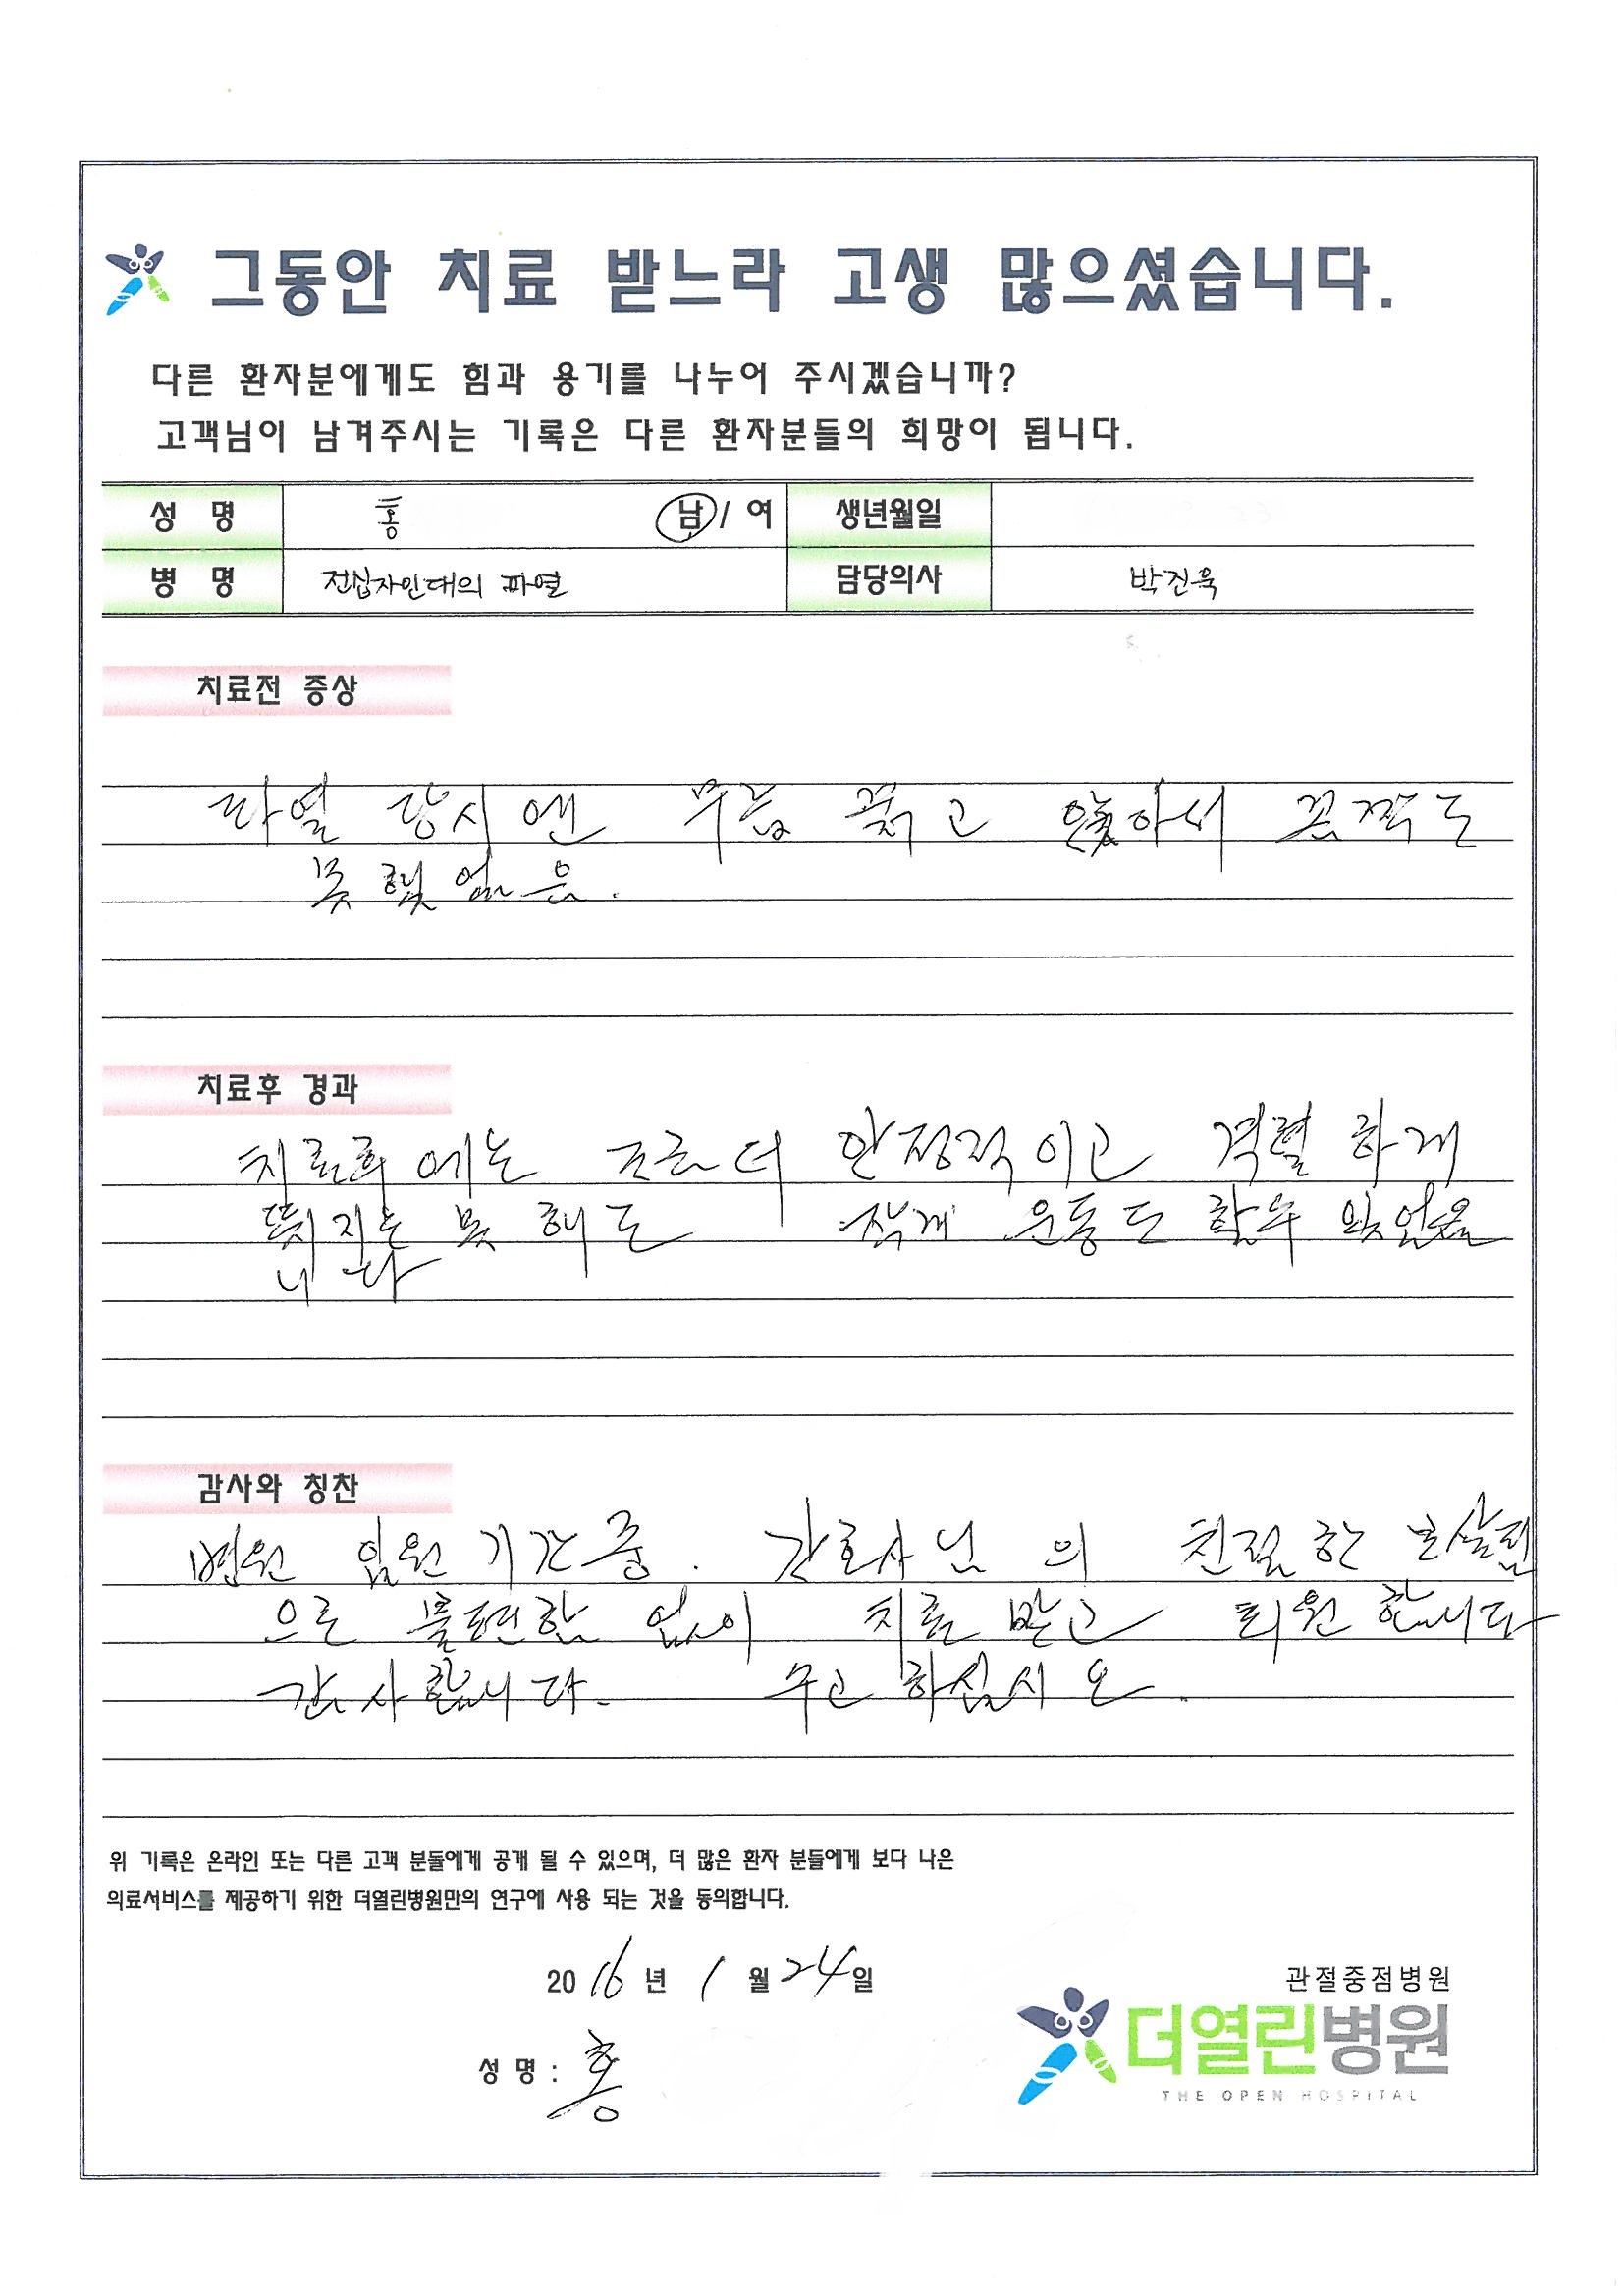 그동안 치료 받느라 고생 많으셨습니다.
다른 환자분에게도 힘과 용기를 나누어 주시겠습니까?
고객님이 남겨주시는 기록은 다른 환자분들의 희망이 됩니다.
성 명 홍 남 / 여 생년월일
병 명 전십자인대의 파열 담당의사 박진욱
치료전 증상
파열 당시엔 무릎 꿇고 앉아서 꼼짝도
못 했었음.
치료후 경과
치료후에는 조금 더 안정적이고 격렬하게
뛰지는 못해도 작게 운동도 할수 있었습
니다
감사와 칭찬
병원 입원 기간중. 간호사님의 친절한 보살핌
으로 불편함 없이 치료 받고 퇴원합니다
감사합니다. 수고하십시오.
위 기록은 온라인 또는 다른 고객 분들에게 공개 될 수 있으며, 더 많은 환자 분들에게 보다 나은
의료서비스를 제공하기 위한 더열린병원만의 연구에 사용 되는 것을 동의합니다.
2016년 1월 24일
성 명 : 홍
관절중점병원
더열린병원
THE OPEN HOSPITAL